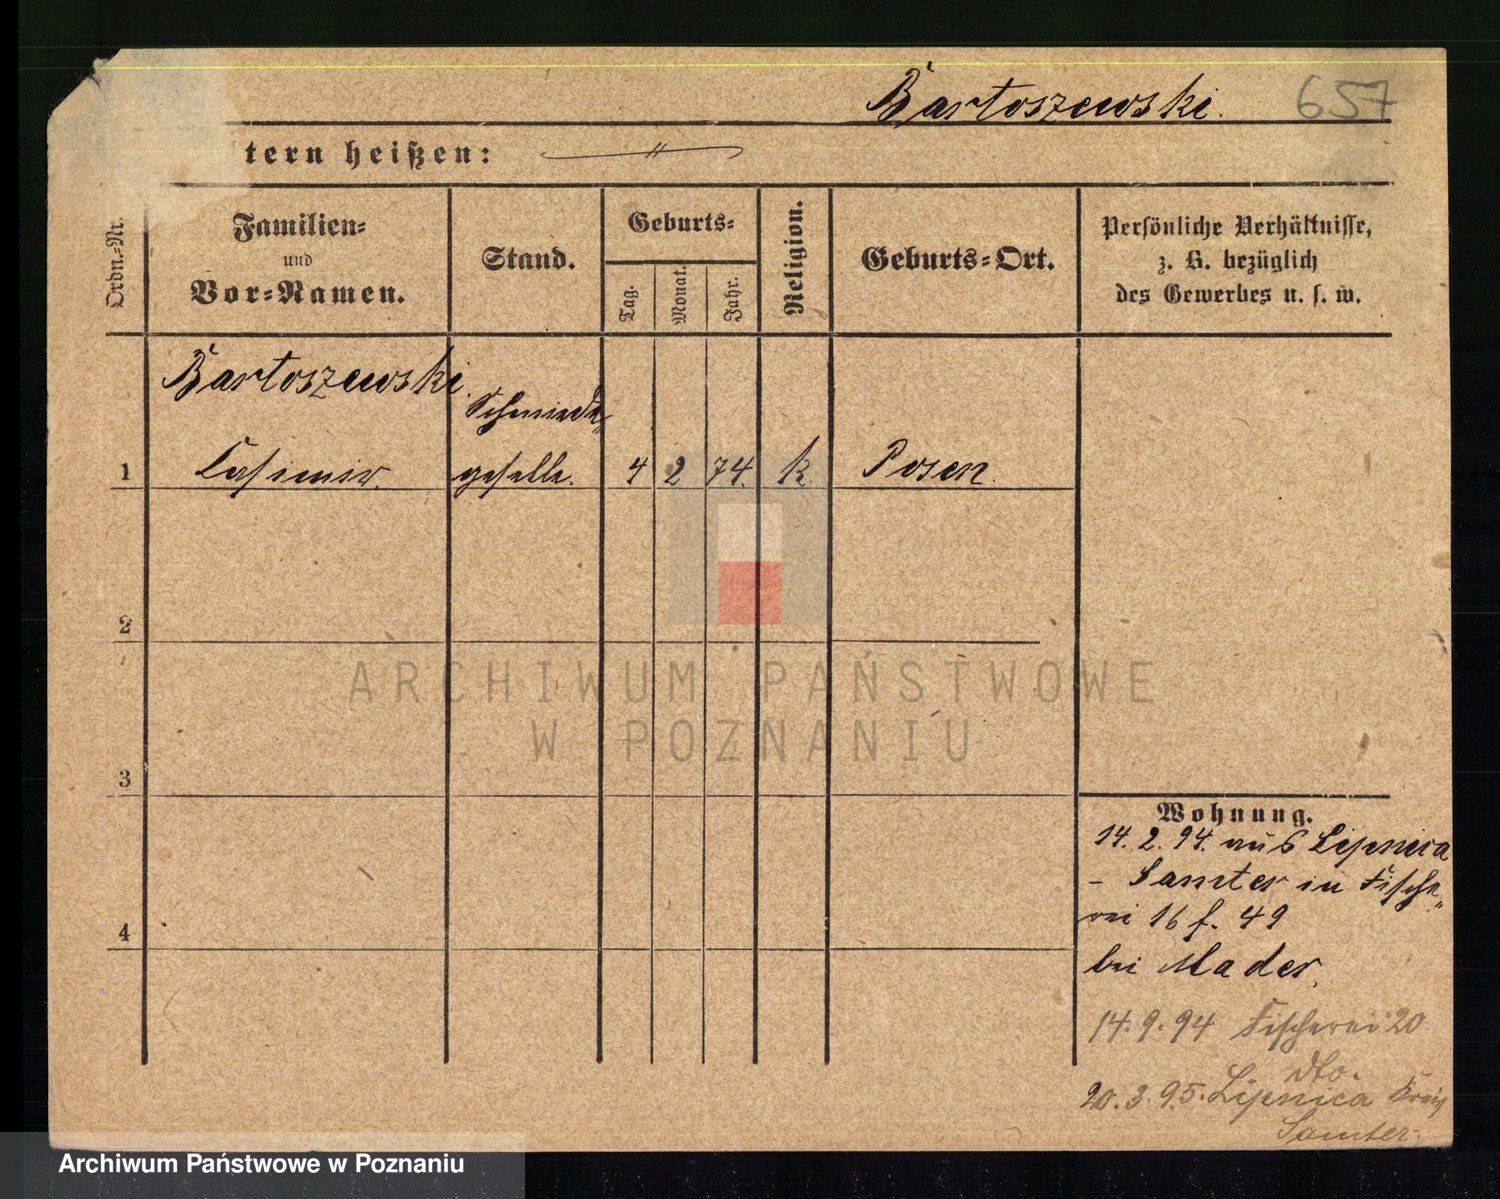 Bartoszewski.
657
tern heißen:
Ordn.-Nr.
Familien-
und
Vor-Namen.
Stand.
Geburts-
Tag.
Monat.
Jahr.
Religion.
Geburts-Ort.
Persönliche Verhältnisse,
z. B. bezüglich
des Gewerbes u. s. w.
Bartoszewski.
Schmiede-
1 Casimir. geselle. 4 2 74. k. Posen.
2
ARCHIWUM PAŃSTWOWE
W POZNANIU
3
Wohnung.
14. 2. 94. aus Lipnica
- Samter in Fische-
rei 16 f. 49
4
bei Mader.
14. 9. 94 Fischerei 20
dto.
20. 3. 95. Lipnica Kreis
Samter.
Archiwum Państwowe w Poznaniu